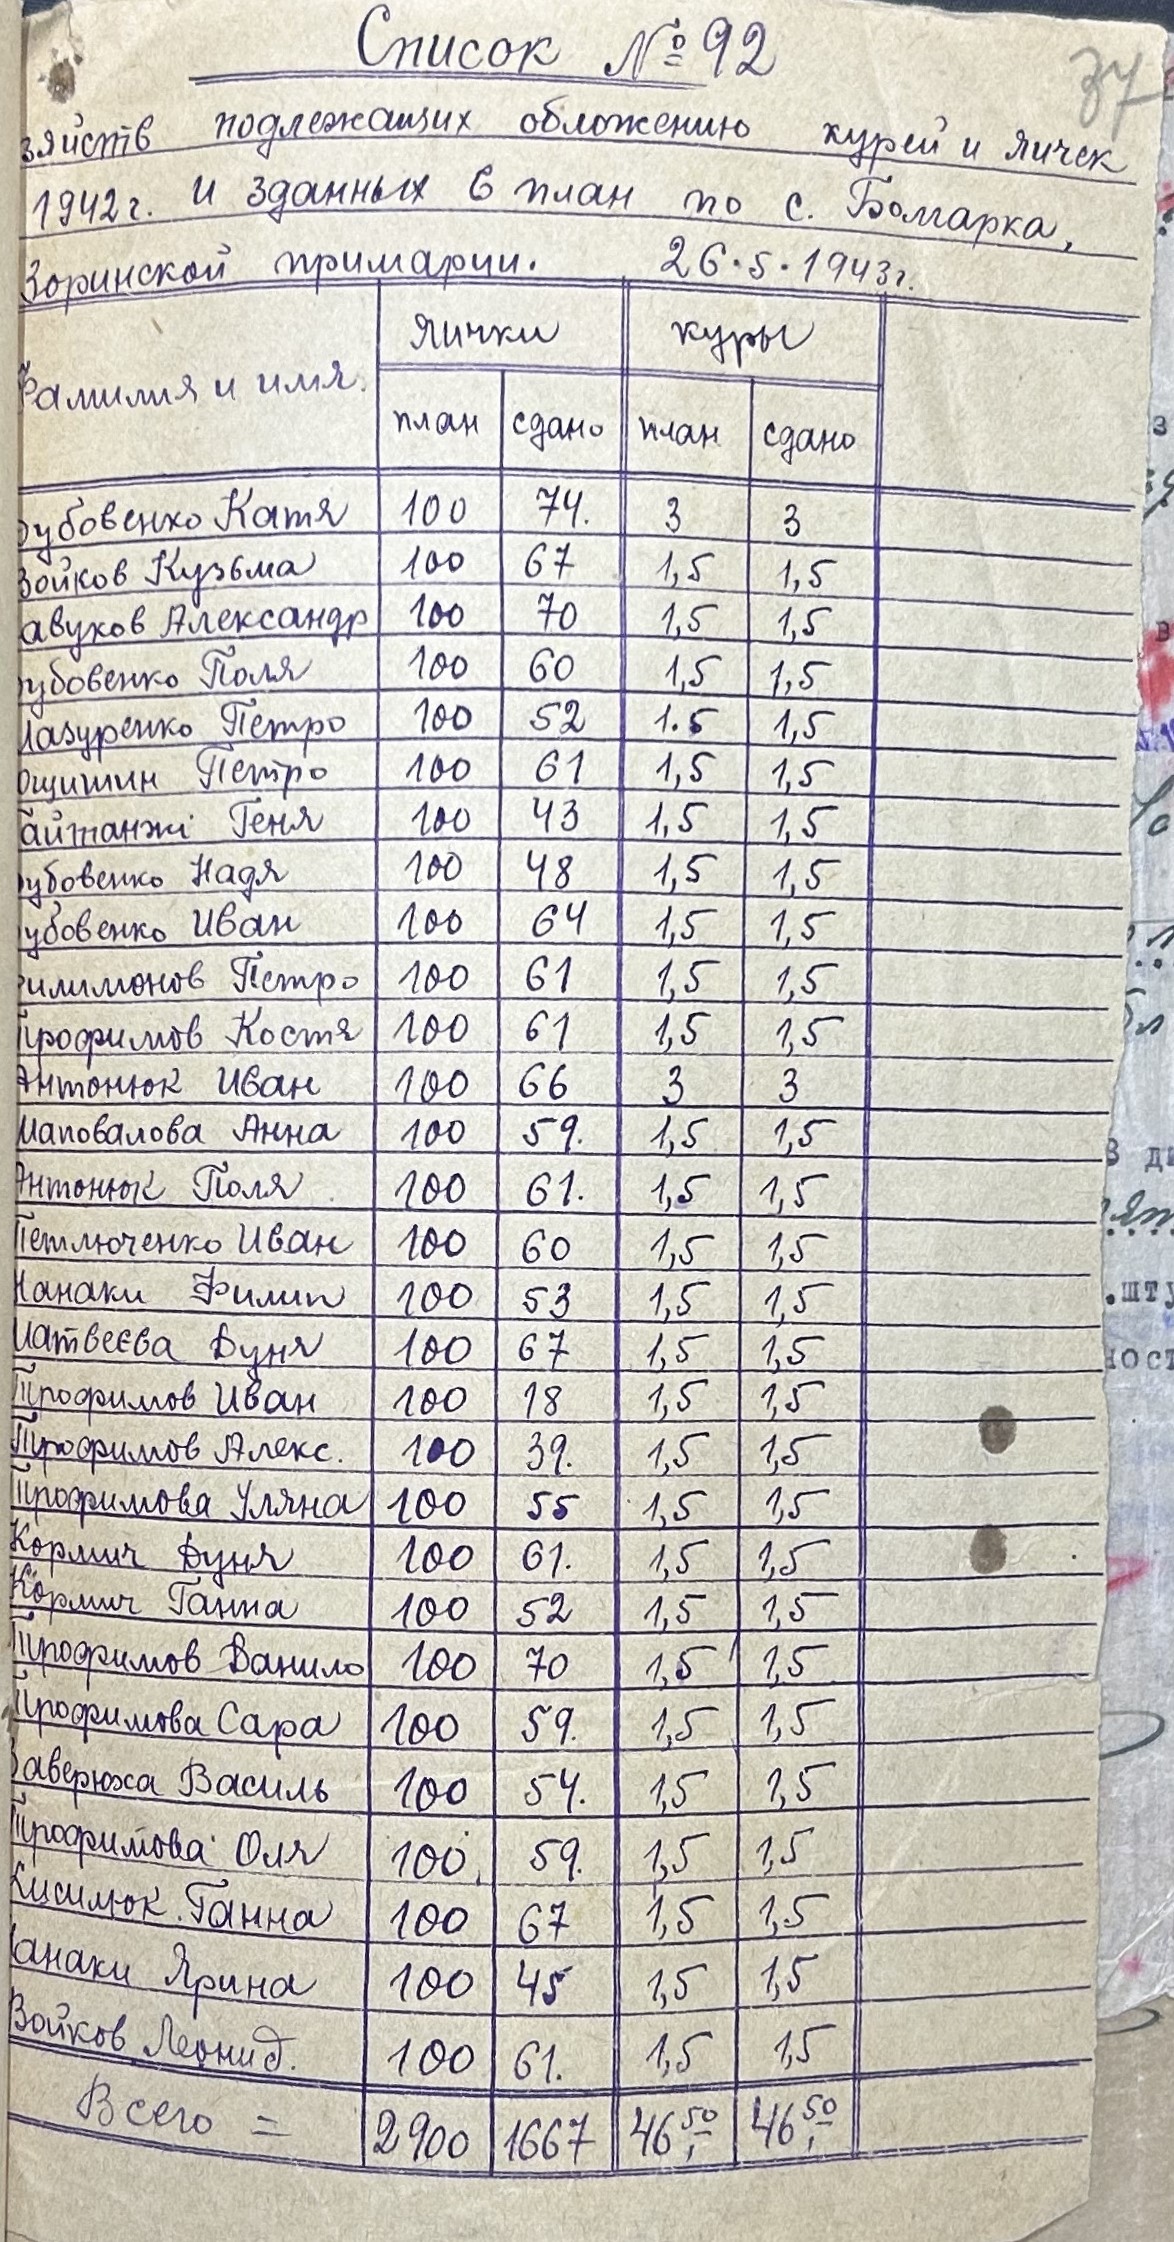 Список № 92
37
зяйств подлежащих обложению курей и яичек
1942г. и зданных в план по с. Болгарка,
Зоринской примарии. 26.5.1943г.
Фамилия и имя. яички куры
план сдано план сдано
рубовенко Катя 100 74. 3 3
Войков Кузьма 100 67 1,5 1,5
авуков Александр 100 70 1,5 1,5
рубовенко Поля 100 60 1,5 1,5
Мазуренко Петро 100 52 1.5 1,5
ощишин Петро 100 61 1,5 1,5
Гайтанжи Геня 100 43 1,5 1,5
рубовенко Надя 100 48 1,5 1,5
рубовенко Иван 100 64 1,5 1,5
Филимонов Петро 100 61 1,5 1,5
Трофимов Костя 100 61 1,5 1,5
Антонюк Иван 100 66 3 3
Шаповалова Анна 100 59. 1,5 1,5
Антонюк Поля 100 61. 1,5 1,5
Петлюченко Иван 100 60 1,5 1,5
Танаки Филип 100 53 1,5 1,5
Матвеєва Дуня 100 67 1,5 1,5
Трофимов Иван 100 18 1,5 1,5
Трофимов Алекс. 100 39. 1,5 1,5
Трофимова Уляна 100 55 1,5 1,5
Кормич Дуня 100 61. 1,5 1,5
Кормич Ганна 100 52 1,5 1,5
Трофимов Данило 100 70 1,5 1,5
Трофимова Сара 100 59. 1,5 1,5
Заверюха Василь 100 54. 1,5 1,5
Трофимова Оля 100 59. 1,5 1,5
Кисилюк Ганна 100 67 1,5 1,5
анаки Ярина 100 45 1,5 1,5
Войков Леонид. 100 61. 1,5 1,5
Всего = 2900 1667 46,50 46,50